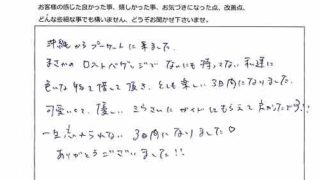 お客様の感じた良かった事、嬉しかった事、お気づきになった点、改善点、
どんな些細な事でも構いません、どうぞお聞かせ下さいませ。
沖縄からプーケットに来ました。
まさかのロストバゲッジで なにも持ってない私達に
色んな物を貸して頂き、とても楽しい3日間になりました。
可愛いくて、優しい ミらさいにガイドしてもらえて良かったです!!
一生忘れられない 3日間になりました♡
ありがとうございました!!